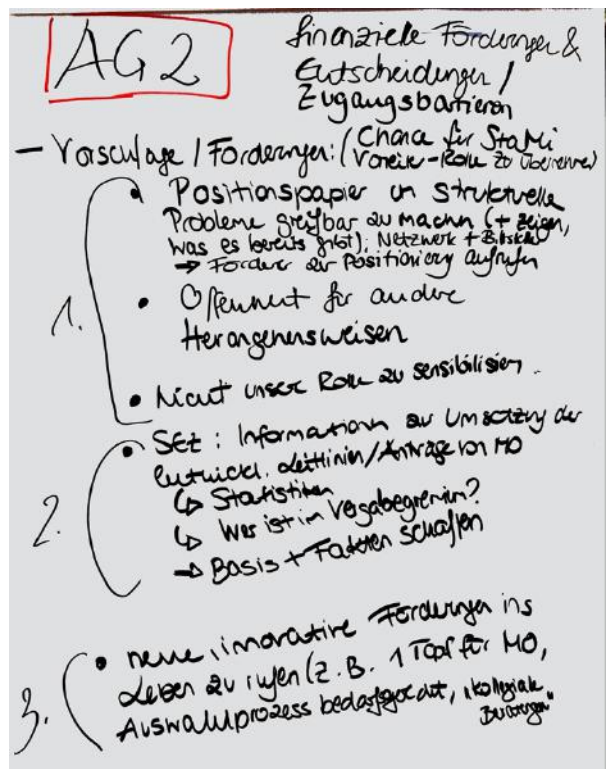 AG2
finanzielle Förderungen &
Entscheidungen /
Zugangsbarrieren
– Vorschläge / Forderungen: (Chance für StaMi
Vorreiter-Rolle zu übernehmen)
1.
• Positionspapier um strukturelle
Probleme greifbar zu machen (+ zeigen,
was es bereits gibt); Netzwerk +
→ Förderer zur Positionierung aufrufen
• Offenheit für andere
Herangehensweisen
• Nicht unsere Rolle zu sensibilisieren.
2.
• SEZ: Informationen zur Umsetzung der
entwickl. Leitlinien/Anträge von MO
↳ Statistiken
↳ Wer ist im Vergabegremium?
→ Basis + Fakten schaffen
3.
• neue, innovative Förderungen ins
Leben zu rufen (z.B. 1 Topf für MO,
Auswahlprozess bedarfsgerecht, „kollegiale